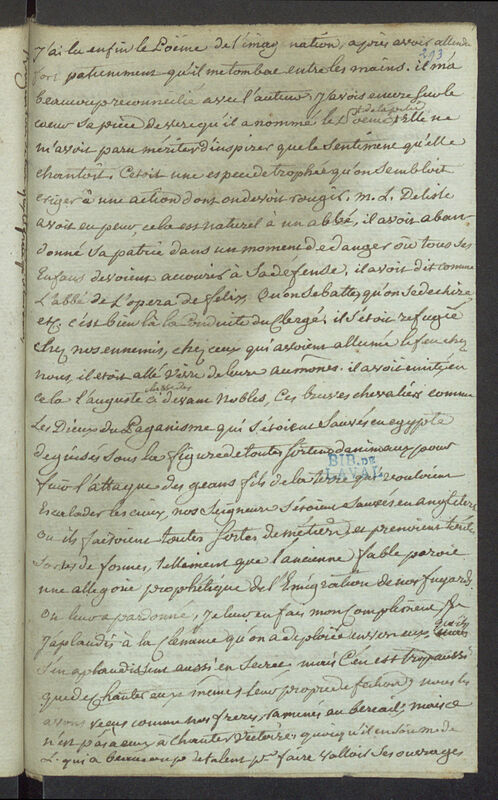 293
J'ai lu enfin le Poëme de l'imagination, après avoir attendu
fort patiemment qu'il me tombat entre les mains. il m'a
beaucoup reconcilié avec l'auteur, J'avois encore sur le
coeur sa pièce de vers qu'il a nommé le Poëme de la pitié, elle ne
m'avoit paru mériter d'inspirer que le sentiment qu'elle
chantoit. C'etoit une espece de trophée qu'on sembloit
eriger à une action dont on devoit rougir. M. L. Delisle
avoit eu peur, cela est naturel à un abbé, il avoit aban
donné sa patrie dans un moment de danger où tous ses
Enfans devoient accourir à sa défense, il avoit dit comme
L'abbé de L'opera de felix, Qu'on se batte, qu'on se dechire
etc. c'est bien là la conduite du Clergé; il s'étoit refugié
chez nos ennemis, chez ceux qui avoient allumé le feu chez
nous, il etoit allé vivre de leurs aumônes. il avoit imité en
cela l'auguste classe des ci devant Nobles, Ces braves chevaliers comme
Les Dieux du Paganisme qui s'etoient sauvés en egypte
deguisés sous la figure de toutes sortes d'animaux pour
fuir l'attaque des geans fils de la terre qui vouloient
Escalader les cieux, nos seigneurs s'étoient sauvés en angleterre
où ils faisoient toutes sortes de métiers et prenoient toutes
sortes de formes, tellement que l'ancienne fable paroit
une allegorie prophétique de l'Emigration de nos fuyards
On leur a pardonné, Je leur en fais mon compliment, &
J'aplaudis à la clémence qu'on a deploiée envers eux, qu'ils
s'en aplaudissent aussi en secret mais C'en est trop aussi
que de chanter eux mêmes leur propre defection; nous les
avons reçus comme nos freres, ramenés au bercail; mais ce
n'est pas à eux à chanter victoire; quoiqu'il en soit M. de
L. qui a beaucoup de talent pr. faire valloir ses ouvrages
BIB. DE
LAVAL